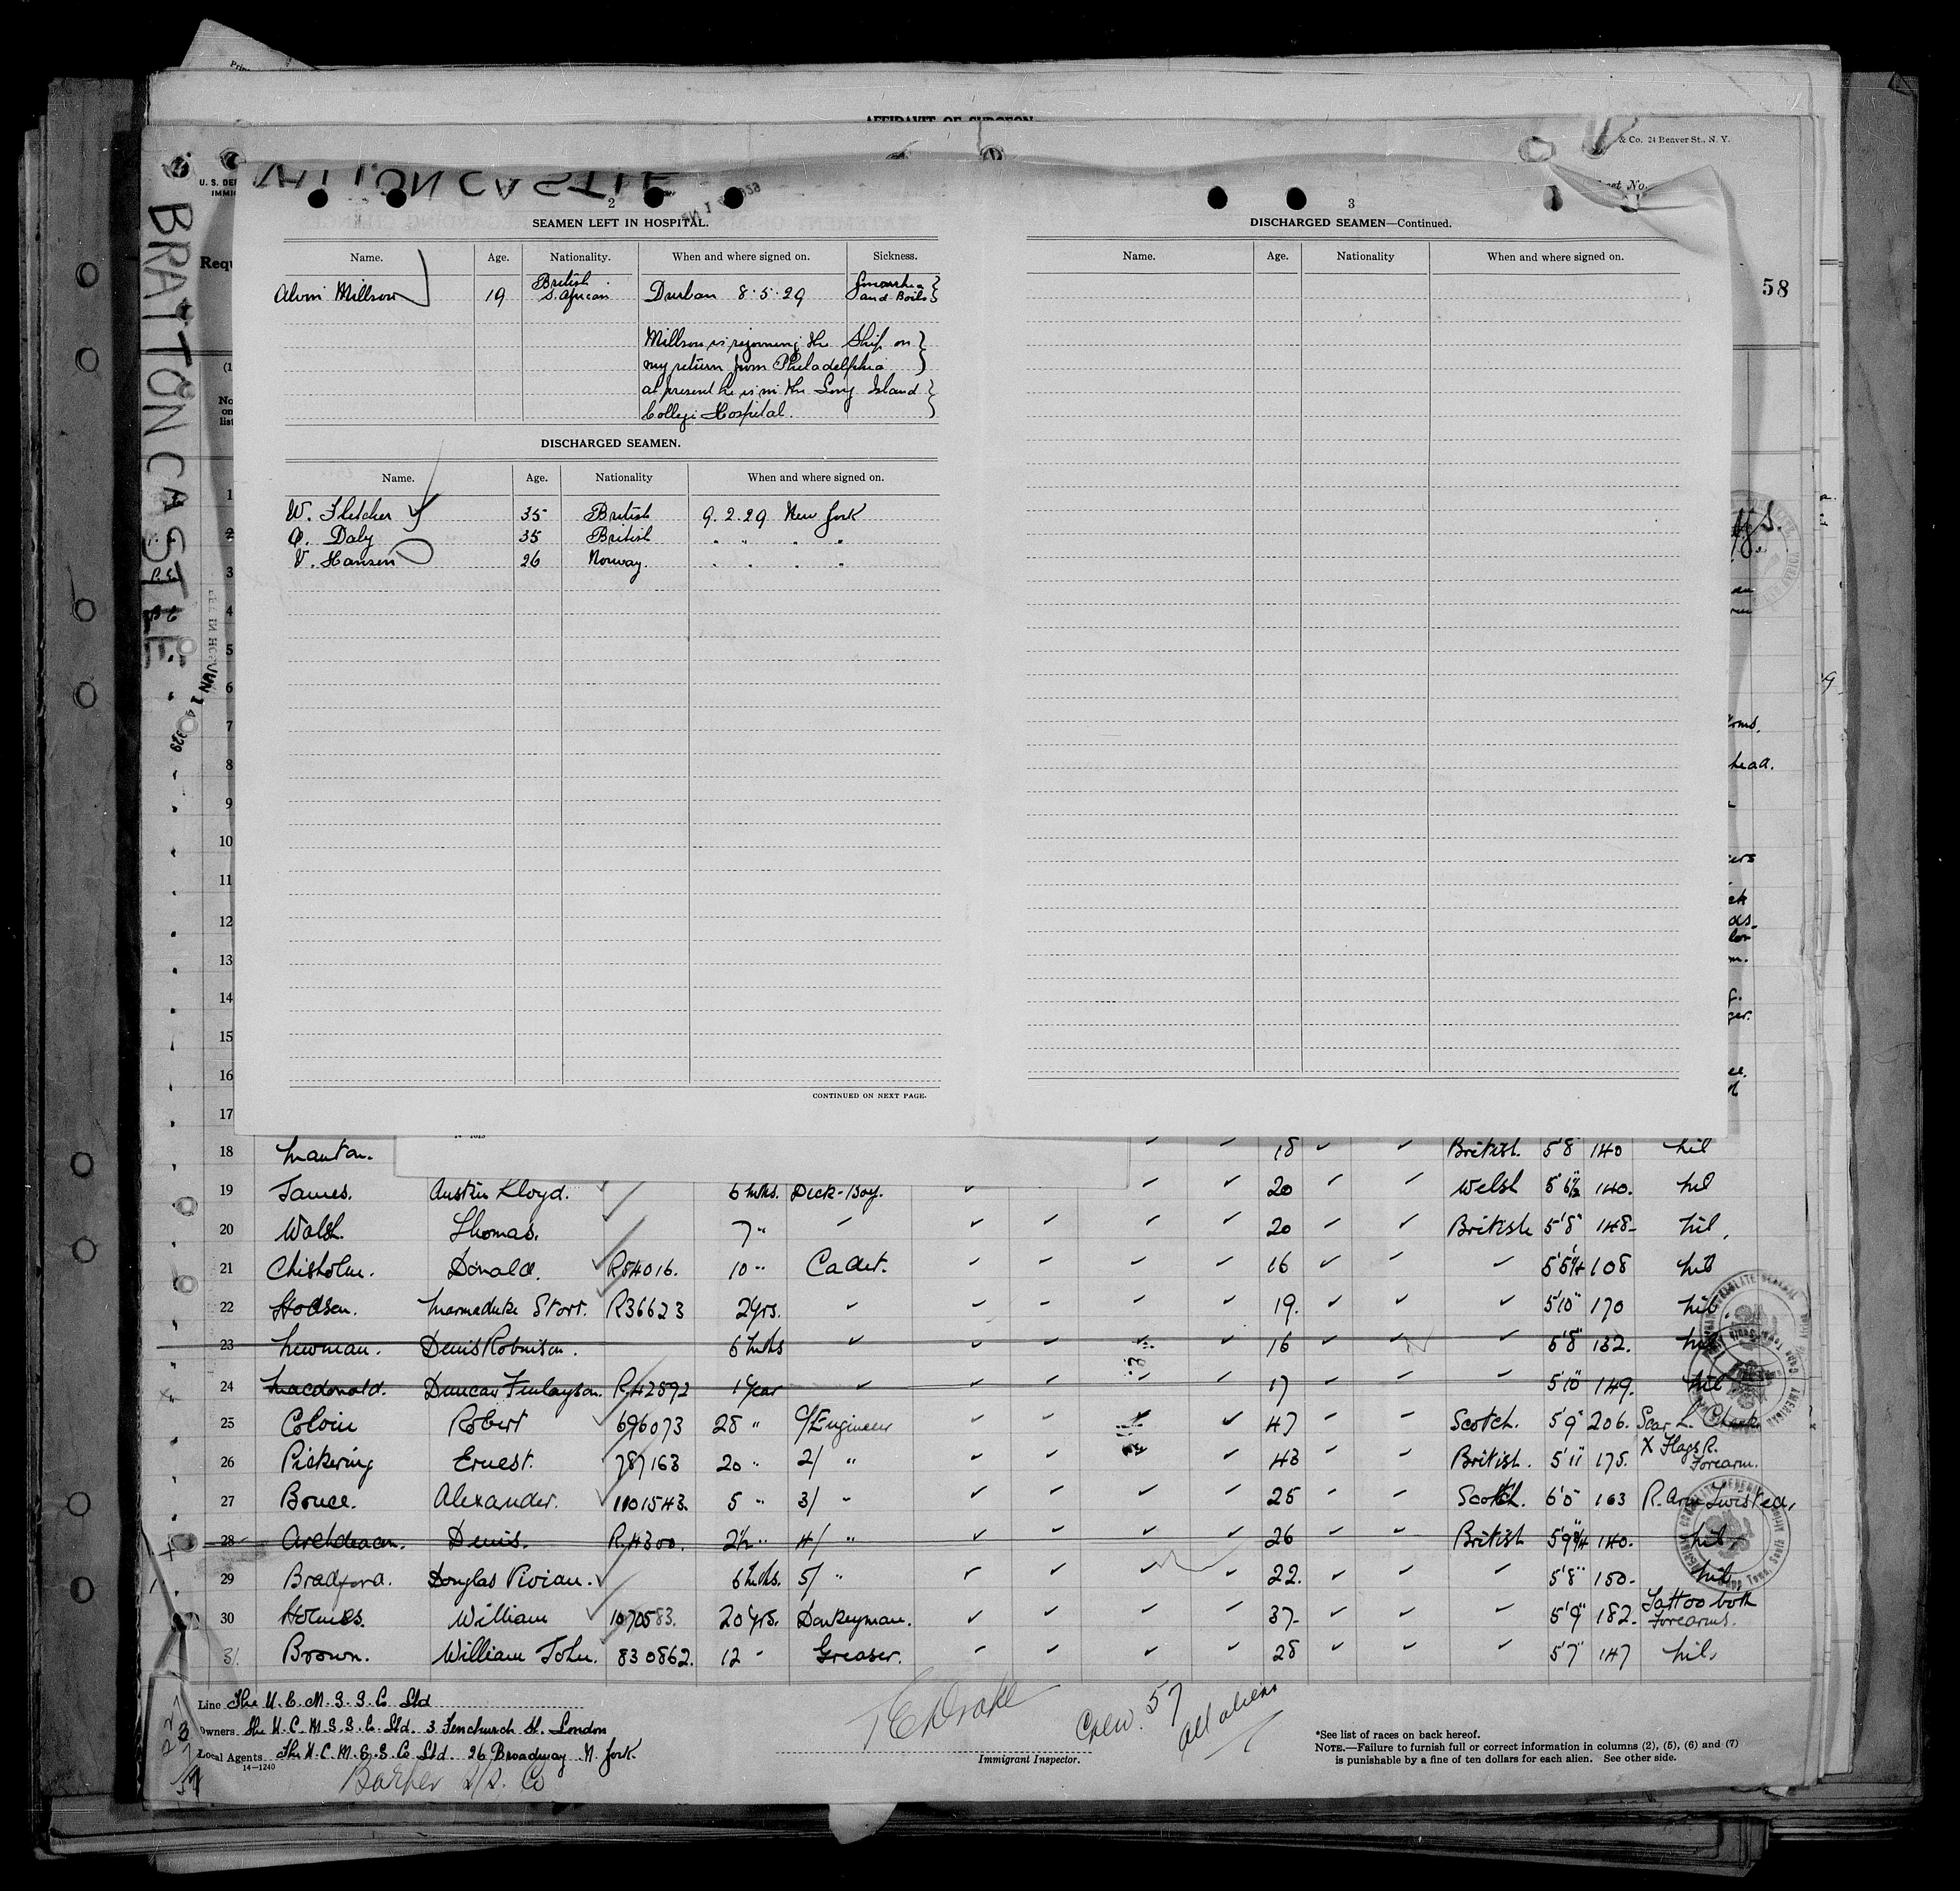 AFFIDAVIT OF SURGEON
& Co. 24 Beaver St., N. Y.
U. S. DE
IMMIG
BRATTON CASTLE
58
2
SEAMEN LEFT IN HOSPITAL.
Name. Age. Nationality. When and where signed on. Sickness.
Alvin Millson 19 British S. African Durban 8·5·29 and Boils
Millson is rejoining the Ship on
my return from Philadelphia
at present he is in the Long Island
College Hospital.
DISCHARGED SEAMEN.
Name. Age. Nationality When and where signed on.
W. Fletcher 35 British 9.2.29 New York
Daly 35 British " " " "
V. Hansen 26 Norway. " " " "
CONTINUED ON NEXT PAGE.
3
DISCHARGED SEAMEN—Continued.
Name. Age. Nationality When and where signed on.
1
2
3
4
5
6
7
8
9
10
11
12
13
14
15
16
17
18 Manton. 18 British. 5'8 140 nil
19 James. Austin Lloyd. 6 mths. Deck-Boy. 20 Welsh 5'6½ 140. nil
20 Walsh. Thomas. 7 " 20 British 5'8" 148- nil,
21 Chisholm. Donald. R54016. 10 " Cadet. 16 108 nil
22 Hodson. Marmaduke Storr. R36623 2yrs. 19. 5'10" 170 nil
23 Newman. Denis Robinson. 6 mths 16 5'8" 132. nil
24 Macdonald. Duncan Finlayson. R42892 1 Year 17 5'10" 149. nil
25 Colvin Robert 696073 28 " C/Engineer 47 Scotch. 5'9" 206. Scar L. Cheek
26 Pickering Ernest. 787163 20 " 2/ " 43 British. 5'11" 175. X Flags R. Forearm.
27 Bruce. Alexander. 1101543. 5 " 3/ " 25 Scotch. 6'0" 163 R. Arm Twisted,
28 Archdeacon. Denis. R4300. 2½ " 4/ " 26 British 5'9¾ 140. nil,
29 Bradford. Douglas Vivian. 6 mths. 5/ " 22. 5'8" 150- nil
30 Holmes. William 1070583. 20 yrs. Donkeyman. 37- 5'9" 182. Tattoo both Forearms.
31 Brown. William John. 830862. 12 " Greaser. 28 5'7" 147 nil,
Line The U. C. M. S. S. Co Ltd
Owners The U. C. M. S. S. Co. Ltd. 3 Fenchurch St. London
Local Agents The U. C. M. S. S. Co Ltd. 26 Broadway N. York
14—1240
Barber S/S. Co
T E Drake
Immigrant Inspector.
Crew. 57
all aliens
*See list of races on back hereof.
NOTE.—Failure to furnish full or correct information in columns (2), (5), (6) and (7)
is punishable by a fine of ten dollars for each alien. See other side.